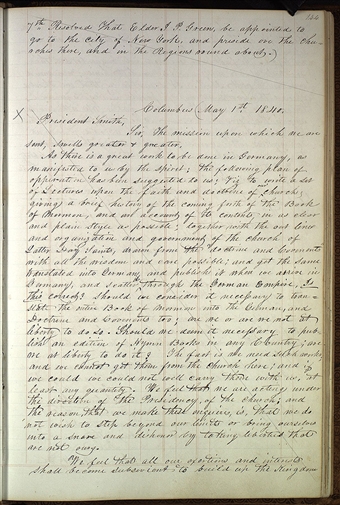 144
7th Resolved That Elder J. P. Green, be appointed to
go to the city of New York, and preside over the chu-
rches there, and in the Regions around about.)
X
Columbus (May 1st 1840.
President Smith,
Sir, The mission upon which we are
sent, swells greater & greater.
As there is a great work to be done in Germany, as
manifested to us by the Spirit; the following plan of
operation has been suggested to us; Viz to write a set
of Lectures upon the faith and doctrine of our Church,
giving a brief history of the coming forth of the Book
of Mormon, and an account of its contents, in as clear
and plain style as possible; together with the out lines
and organization and government of the church of
Latter Day Saints, drawn from the doctrine and Covenants
with all the wisdom and care possible; and get the same
translated into German, and publish it when we arrive in
Germany, and scatter through the German Empire. Is
this correct? Should we consider it necessary to tran-
slate the entire Book of Mormon into the German, and
Doctrine and Covenants too; are we or are we not at
liberty to do so. Should we deem it necessary to pub-
lish an edition of Hymn Books in any Country; are
we at liberty to do it? The fact is we need such works
and we cannot get them from the Church here; and if
we could we could not well carry them with us, at
least any quantity. We feel that we are acting under
the direction of the Presidency of the Church; and
the reason, that we make these enquiries, is, that we do
not wish to step beyond our limits or bring ourselves
into a snare and dishonor by taking liberties that
are not ours.
We feel that all our exertions and interests
shall become subservient to build up the Kingdom